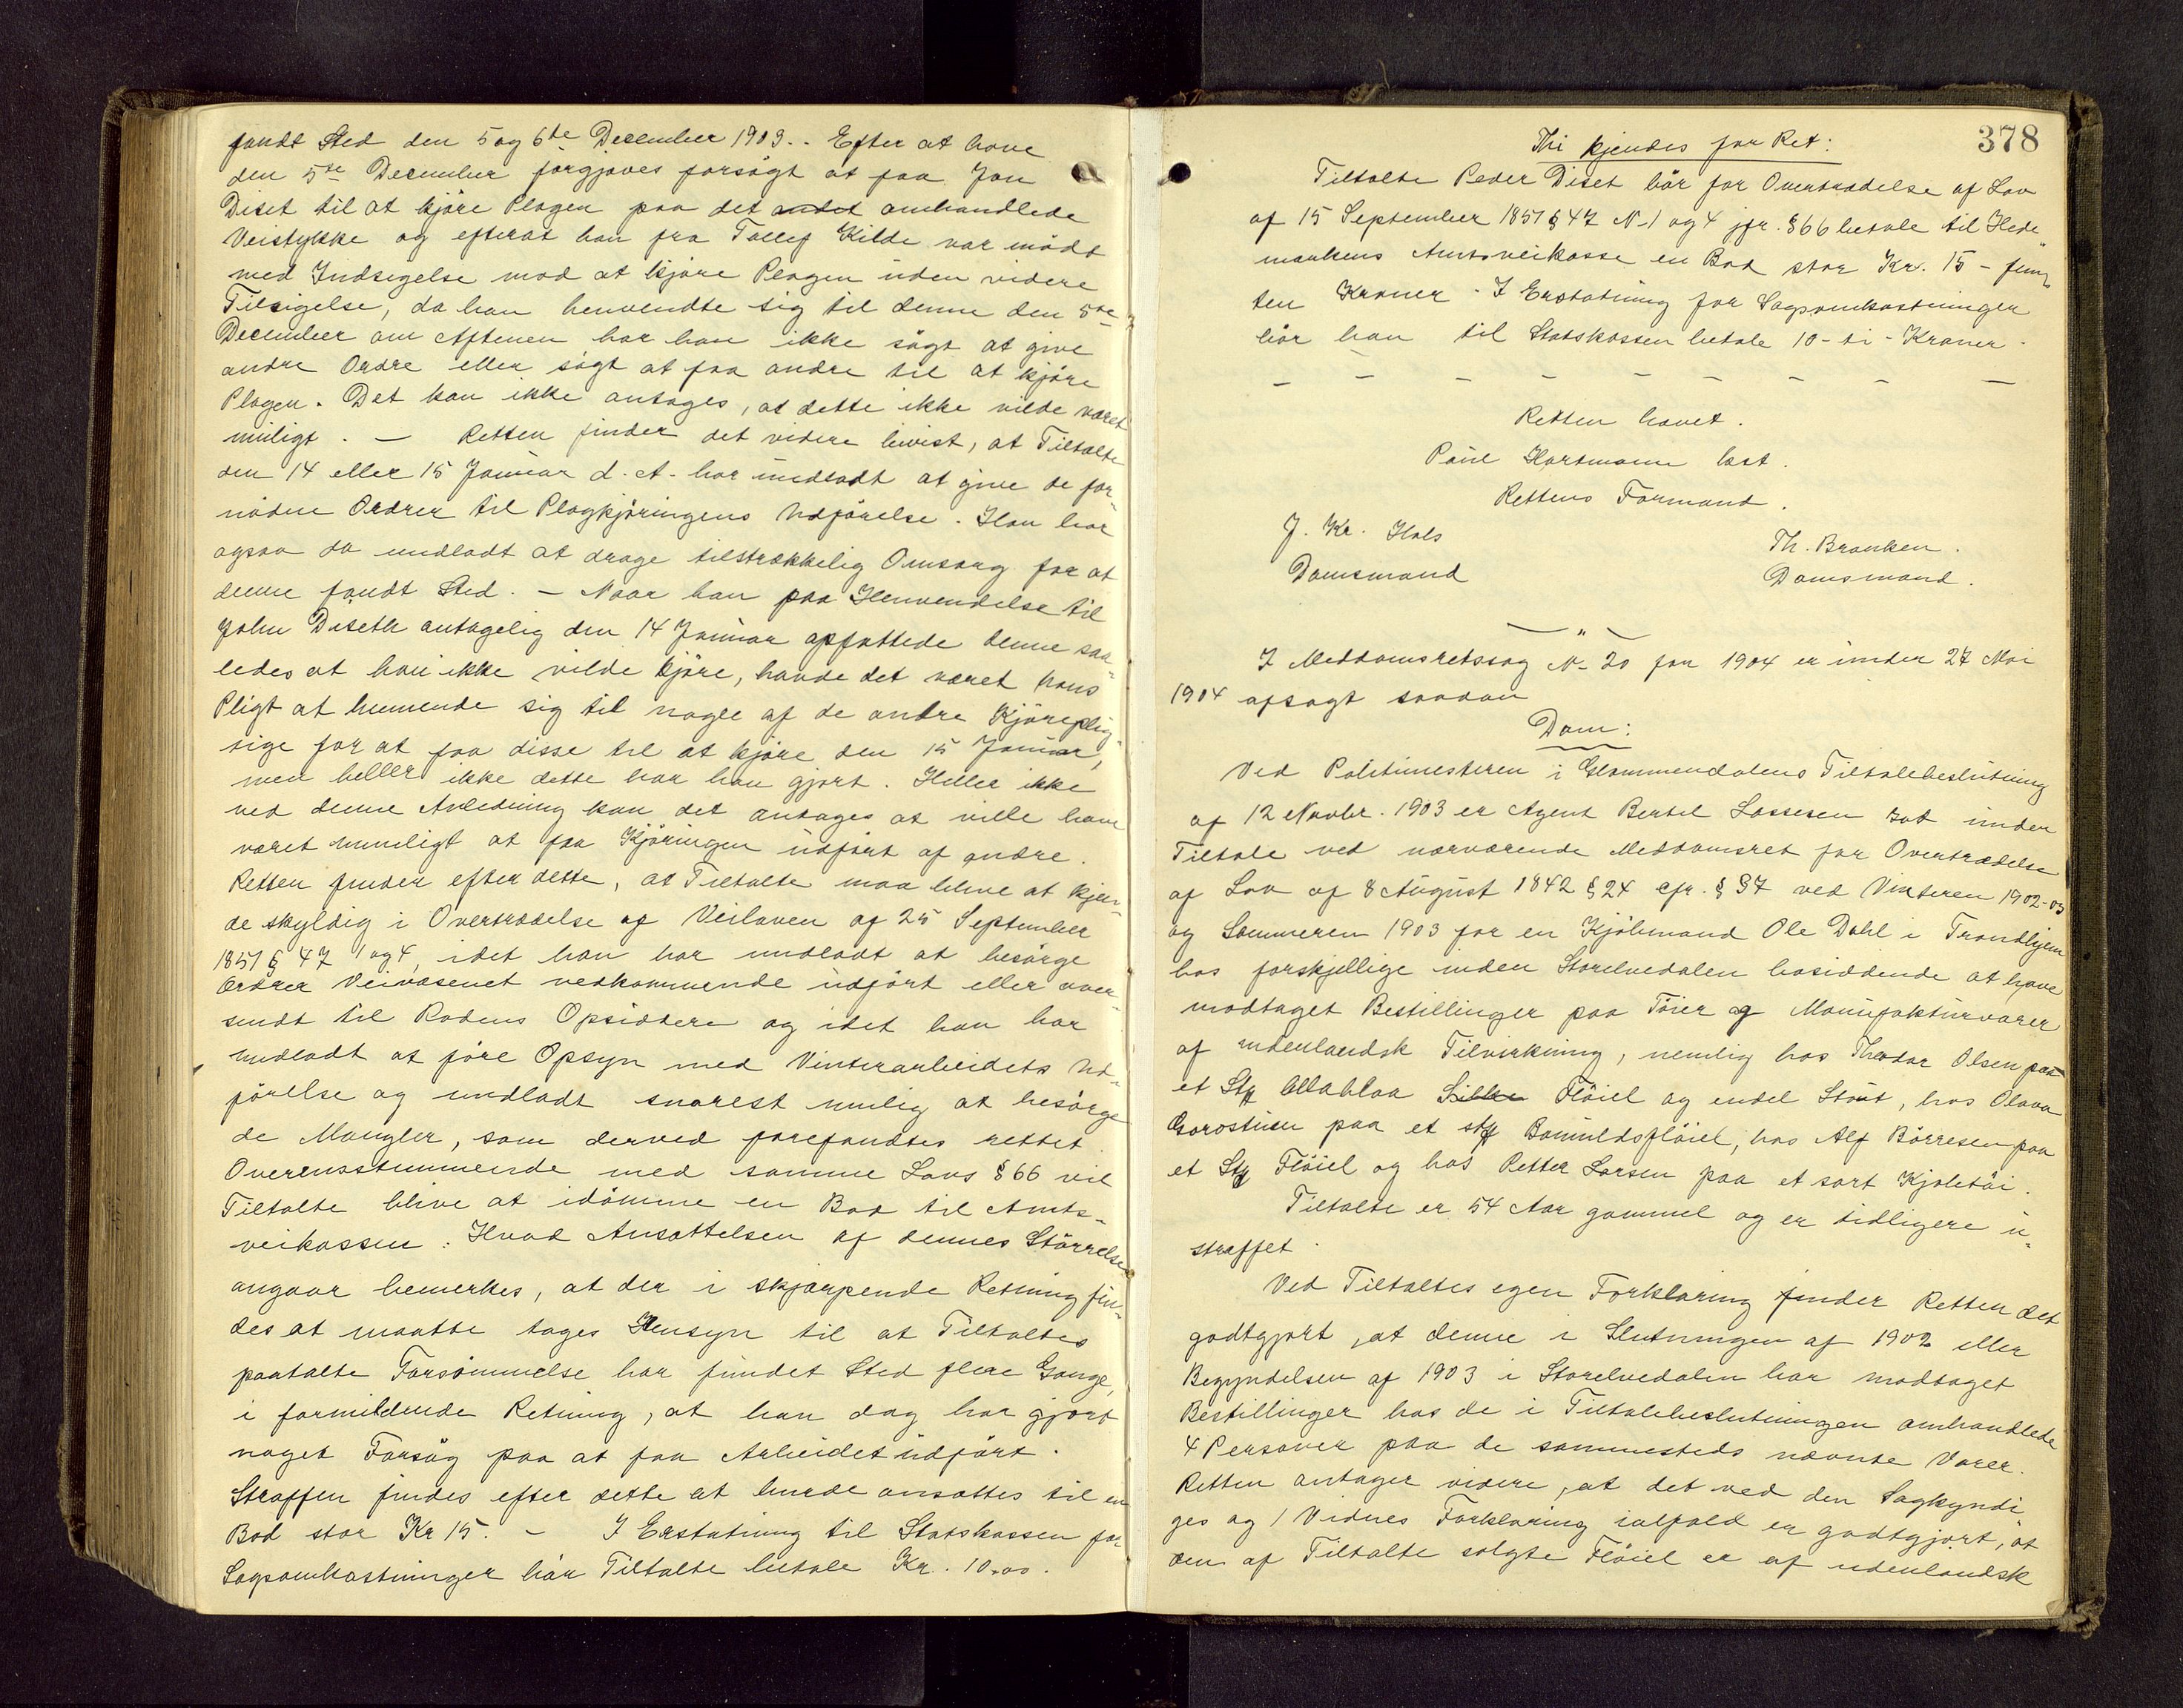 fandt Sted den 5 og 6te December 1903. Efter at have
den 5te December forgjæves forsøgt at faa Jon
Diset til at kjöre Plogen paa det andet omhandlede
Veistykke og efterat han fra Tollef Kilde var mödt
med Indsigelse mod at kjöre Plogen uden videre
Tilsigelse, da han henvendte sig til denne den 5te
December om Aftenen har han ikke sögt at give
andre Ordre eller sögt at faa andre til at kjöre
Plogen. Det kan ikke antages, at dette ikke vilde været
muligt. – Retten finder det videre bevist, at Tiltalte
den 14 eller 15 Januar d. A. har undladt at give de for-
nödne Ordrer til Plogkjöringens Udförelse. Han har
ogsaa da undladt at drage tilstrækkelig Omsorg for at
denne fandt Sted. – Naar han paa Henvendelse til
John Diseth antagelig den 14 Januar opfattede denne saa-
ledes at han ikke vilde kjöre, havde det været hans
Pligt at henvende sig til nogle af de andre Kjöreplig-
tige for at faa disse til at kjöre den 15 Januar,
men heller ikke dette har han gjort. Heller ikke
ved denne Anledning kan det antages at ville have
været umuligt at faa Kjöringen udfört af andre.
Retten finder efter dette, at Tiltalte maa blive at kjen-
de skyldig i Overtrædelse af Veiloven af 25 September
1851 § 47 1 og 4, idet han har undladt at besörge
Ordrer Veivæsenet vedkommende udfört eller over-
sendt til Rodens Opsiddere og idet han har
undladt at före Opsyn med Vinterarbeidets Ud-
förelse og undladt snarest mulig at besörge
de Mangler, som derved forefandtes rettet.
Overensstemmende med samme Lovs § 66 vil
Tiltalte blive at idömme en Bod til Amts-
veikassen. Hvad Ansættelsen af dennes Störrelse
angaar bemerkes, at der i skjærpende Retning fin-
des at maatte tages Hensyn til at Tiltaltes
paatalte Forsömmelse har fundet Sted flere Gange,
i formildende Retning, at han dog har gjort
noget Forsög paa at faa Arbeidet udfört.
Straffen findes efter dette at burde ansættes til en
Bod stor Kr 15. – I Erstatning til Statskassen for
Sagsomkostninger bör Tiltalte betale Kr. 10.00.
378
Thi kjendes for Ret:
Tiltalte Peder Diset bör for Overtrædelse af Lov
af 15 September 1851 § 47 N. 1 og 4 jfr. § 66 betale til Hede-
markens Amtsveikasse en Bod stor Kr. 15 – fem-
ten Kroner. I Erstatning for Sagsomkostninger
bör han til Statskassen betale 10 – ti – Kroner.
– – – – – – – – –
Retten hævet.
Paul Hartmann kst.
Rettens Formand.
J. Kr. Hals
Th. Branken.
Domsmand
Domsmand.
— " —
I Meddomsretssag N. 20 for 1904 er under 27 Mai
1904 afsagt saadan
Dom:
Ved Politimesteren i Glommendalens Tiltalebeslutning
af 12 Novbr. 1903 er Agent Bertel Lossesen sat under
Tiltale ved nærværende Meddomsret for Overtrædelse
af Lov af 8 August 1842 § 24 cfr. § 97 ved Vinteren 1902-03
og Sommeren 1903 for en Kjöbmand Ole Dahl i Trondhjem
hos forskjellige inden Storelvedalen bosiddende at have
modtaget Bestillinger paa Töier og Manufakturvarer
af udenlandsk Tilvirkning, nemlig hos Theodor Olsen paa
et Sty Silke Flöiel og endel Stout, hos Olava
paa et sty Bomuldsflöiel, hos Alf Börresen paa
et Sty Flöiel og hos Petter Larsen paa et sort Kjoletöi.
Tiltalte er 54 Aar gammel og er tidligere u-
straffet.
Ved Tiltaltes egen Forklaring finder Retten det
godtgjort, at denne i Slutningen af 1902 eller
Begyndelsen af 1903 i Storelvedalen har modtaget
Bestillinger hos de i Tiltalebeslutningen omhandlede
4 Personer paa de sammesteds nævnte Varer.
Retten antager videre, at det ved den Sagkyndi-
ges og 1 Vidnes Forklaring ialfald er godtgjort, at
den af Tiltalte solgte Flöiel er af udenlandsk